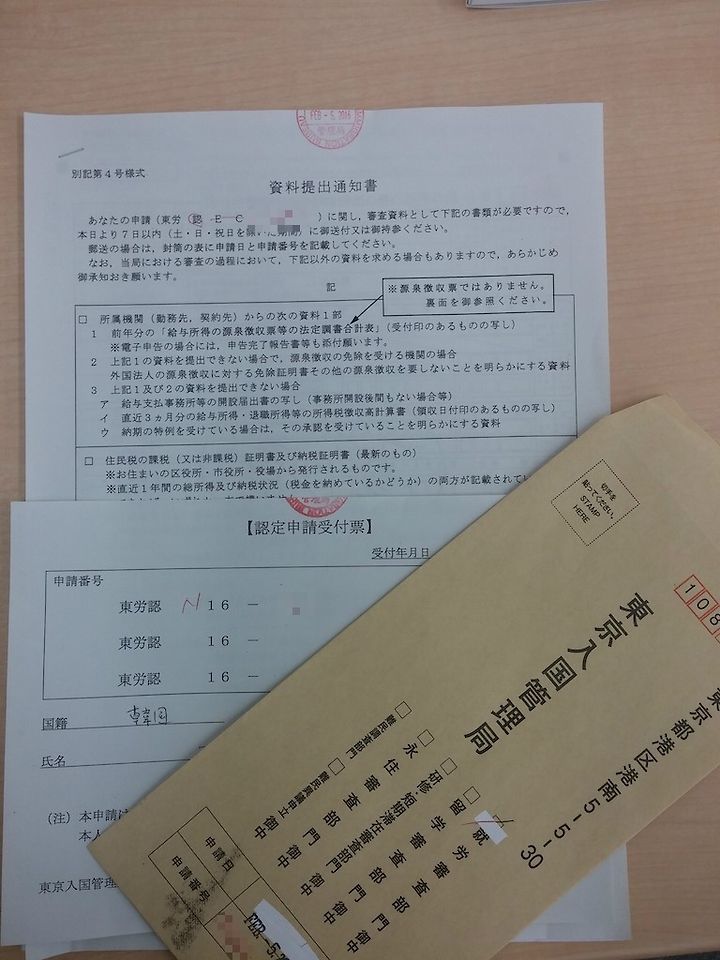 FEB - 5. 2016
管理局
別記第4号様式
資料提出通知書
あなたの申請(東労 認 E C )に関し,審査資料として下記の書類が必要ですので,
本日より7日以内(土・日・祝日を除いた期間)に御送付又は御持参ください。
郵送の場合は,封筒の表に申請日と申請番号を記載してください。
なお,当局における審査の過程において,下記以外の資料を求める場合もありますので,あらかじめ
御承知おき願います。
記
※源泉徴収票ではありません。
裏面を御参照ください。
□ 所属機関(勤務先,契約先)からの次の資料1部
1 前年分の「給与所得の源泉徴収票等の法定調書合計表」(受付印のあるものの写し)
※電子申告の場合には,申告完了報告書等も添付願います。
2 上記1の資料を提出できない場合で,源泉徴収の免除を受ける機関の場合
外国法人の源泉徴収に対する免除証明書その他の源泉徴収を要しないことを明らかにする資料
3 上記1及び2の資料を提出できない場合
ア 給与支払事務所等の開設届出書の写し(事務所開設後間もない場合等)
イ 直近3ヵ月分の給与所得・退職所得等の所得税徴収高計算書(領収日付印のあるものの写し)
ウ 納期の特例を受けている場合は,その承認を受けていることを明らかにする資料
□ 住民税の課税(又は非課税)証明書及び納税証明書(最新のもの)
※お住まいの区役所・市役所・役場から発行されるものです。
※直近1年間の総所得及び納税状況(税金を納めているかどうか)の両方が記載されてい
【認定申請受付票】
受付年月日
申請番号
東労認 N 16 -
東労認 16 -
東労認 16 -
国籍 韓国
氏名
(注) 本申請は
本人
東京入国管理
切手を
貼ってください。
STAMP
HERE
108
東京都港区港南5-5-30
東京入国管理局
就労審査部門 御中
留学審査部門 御中
研修・短期滞在審査部門 御中
永住審査部門 御中
難民調査部門
難民異議申立 御中
申請日
申請番号
FEB. -5. 2